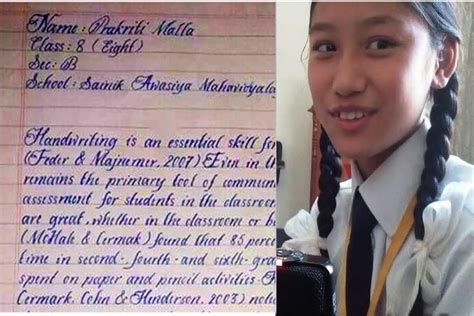 Name : Prakriti Malla
Class : 8 (Eight)
Sec : B
School : Sainik Awasiya Mahavidyalay
Handwriting is an essential skill for
(Feder & Majnemer, 2007) Even in th
remains the primary tool of commun
assessment for students in the classroom
are great, whether in the classroom or b
(McHale & Cermak) found that 85 perce
time in second-, fourth- and sixth-gra
spent on paper and pencil activities.
Cermark, Cohn & Henderson, 2003) note